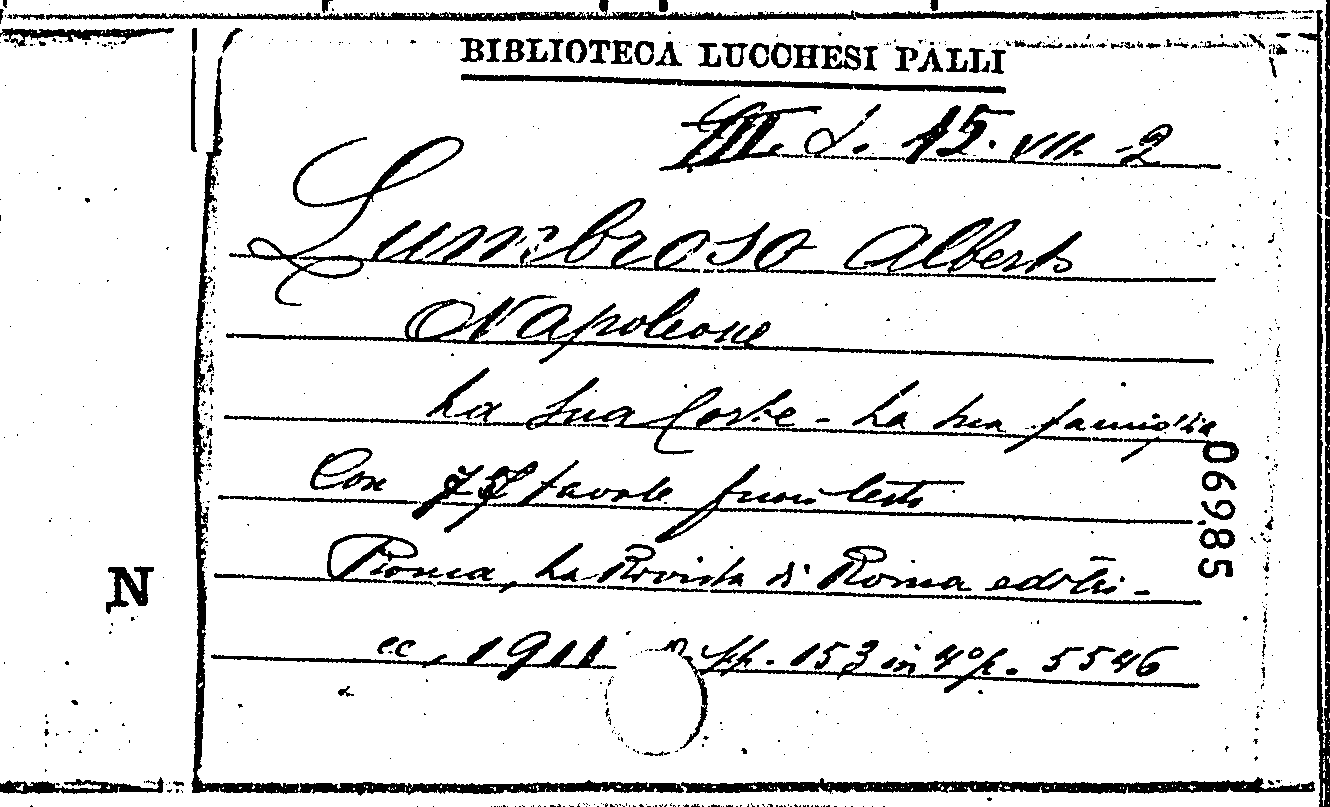 BIBLIOTECA LUCCHESI PALLI
III. L. 15. VII. 2
Lumbroso Alberto
Napoleone
La sua Corte - La sua famiglia
Con 77 tavole fuori testo
Roma, La Rivista di Roma editri-
ce, 1911 pp. 153 in 4° p. 5546
06985
N